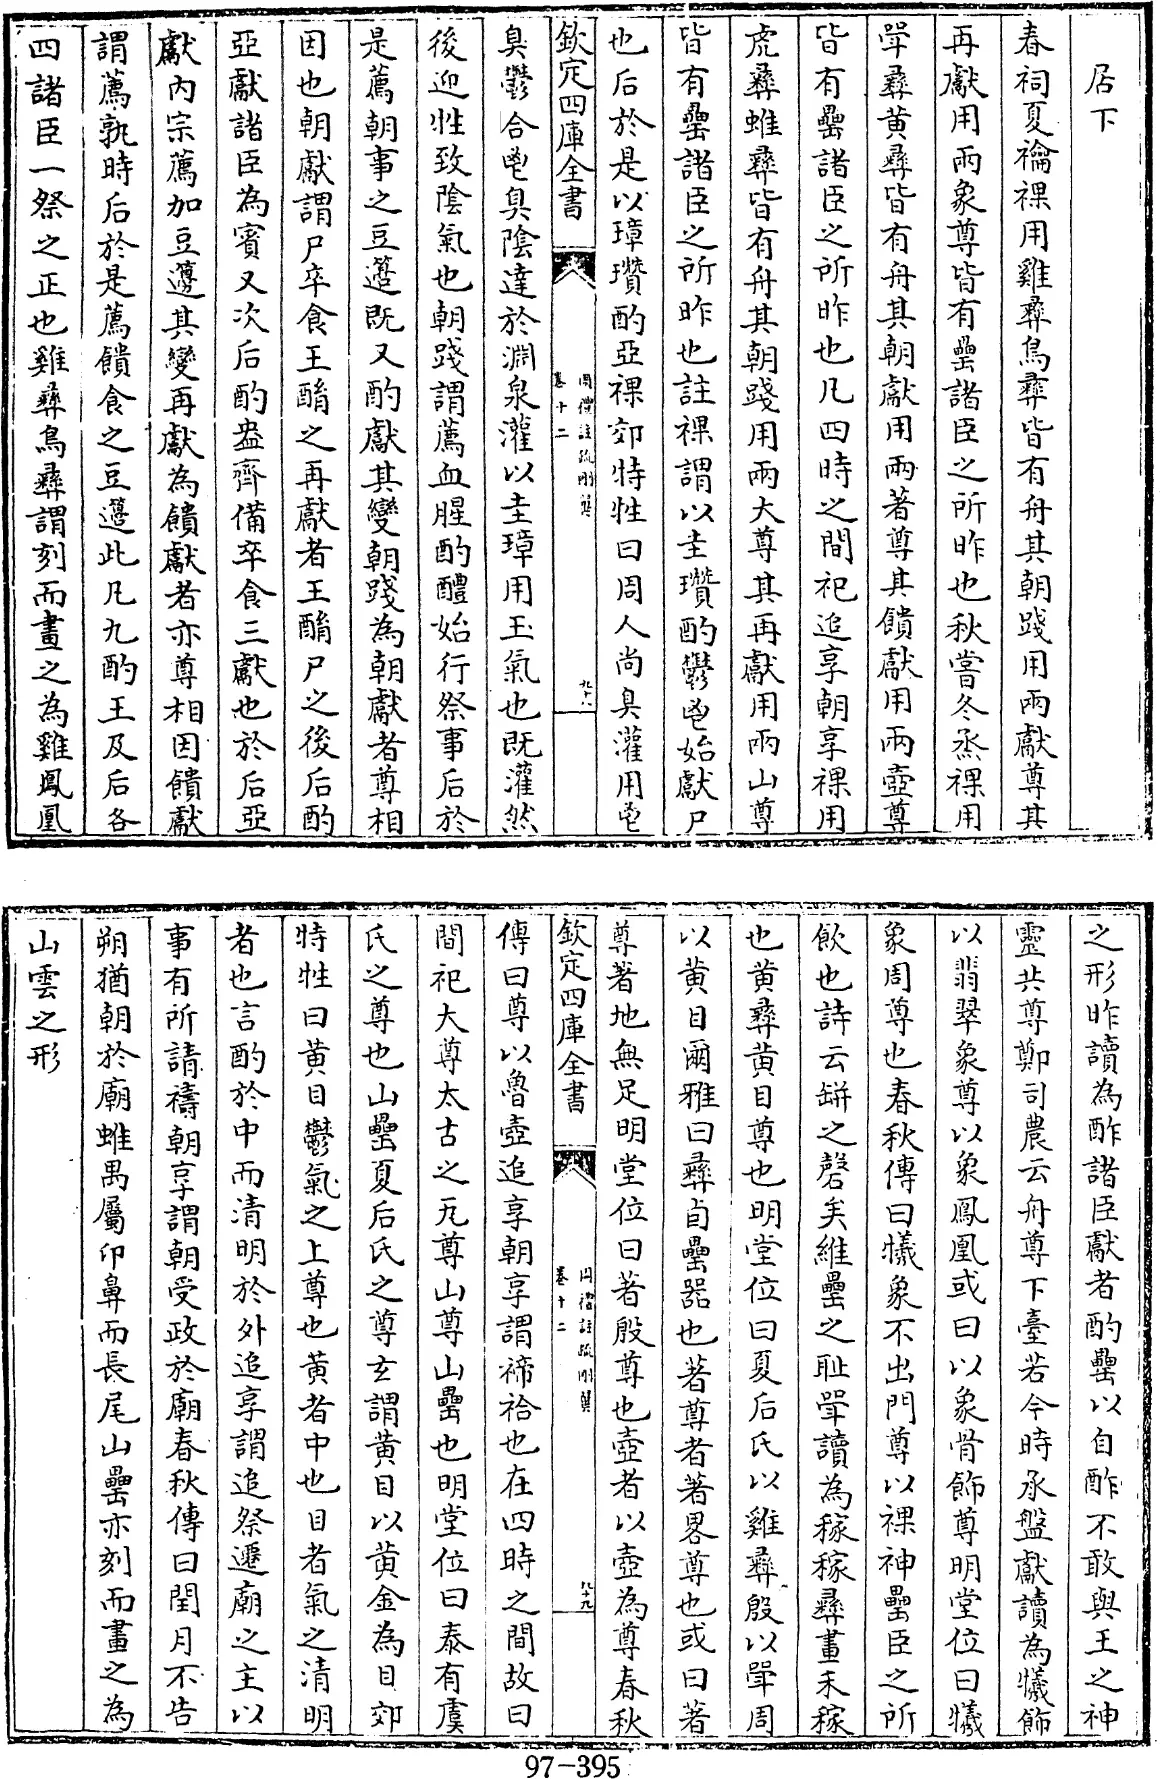 居下
春祠夏禴祼用雞彝鳥彝皆有舟其朝踐用兩獻尊其
再獻用兩象尊皆有罍諸臣之所昨也秋嘗冬烝祼用
斝彝黄彝皆有舟其朝獻用兩著尊其饋獻用兩壺尊
皆有罍諸臣之所昨也凡四時之間祀追享朝享祼用
虎彝蜼彝皆有舟其朝踐用兩大尊其再獻用兩山尊
皆有罍諸臣之所昨也註祼謂以圭瓚酌鬱鬯始獻尸
也后於是以璋瓚酌亞祼郊特牲曰周人尚臭灌用鬯
欽定四庫全書
周禮註疏刪翼
卷十二
九十八
臭鬱合鬯臭陰達於淵泉灌以圭璋用玉氣也既灌然
後迎牲致陰氣也朝踐謂薦血腥酌醴始行祭事后於
是薦朝事之豆籩既又酌獻其變朝踐為朝獻者尊相
因也朝獻謂尸卒食王酳之再獻者王酳尸之後后酌
亞獻諸臣為賓又次后酌盎齊備卒食三獻也於后亞
獻内宗薦加豆籩其變再獻為饋獻者亦尊相因饋獻
謂薦孰時后於是薦饋食之豆籩此凡九酌王及后各
四諸臣一祭之正也雞彝鳥彝謂刻而畫之為雞鳳凰
之形昨讀為酢諸臣獻者酌罍以自酢不敢與王之神
靈共尊鄭司農云舟尊下臺若今時承盤獻讀為犧飾
以翡翠象尊以象鳳凰或曰以象骨飾尊明堂位曰犧
象周尊也春秋傳曰犧象不出門尊以祼神罍臣之所
飲也詩云缾之罄矣維罍之耻斝讀為稼稼彝畫禾稼
也黄彝黄目尊也明堂位曰夏后氏以雞彝殷以斝周
以黄目爾雅曰彝卣罍器也著尊者著畧尊也或曰著
尊著地無足明堂位曰著殷尊也壺者以壺為尊春秋
欽定四庫全書
周禮註疏刪翼
卷十二
九十九
傳曰尊以魯壺追享朝享謂禘祫也在四時之間故曰
間祀大尊太古之瓦尊山尊山罍也明堂位曰泰有虞
氏之尊也山罍夏后氏之尊玄謂黄目以黄金為目郊
特牲曰黄目鬱氣之上尊也黄者中也目者氣之清明
者也言酌於中而清明於外追享謂追祭遷廟之主以
事有所請禱朝享謂朝受政於廟春秋傳曰閏月不告
朔猶朝於廟蜼禺屬卬鼻而長尾山罍亦刻而畫之為
山雲之形
97-395